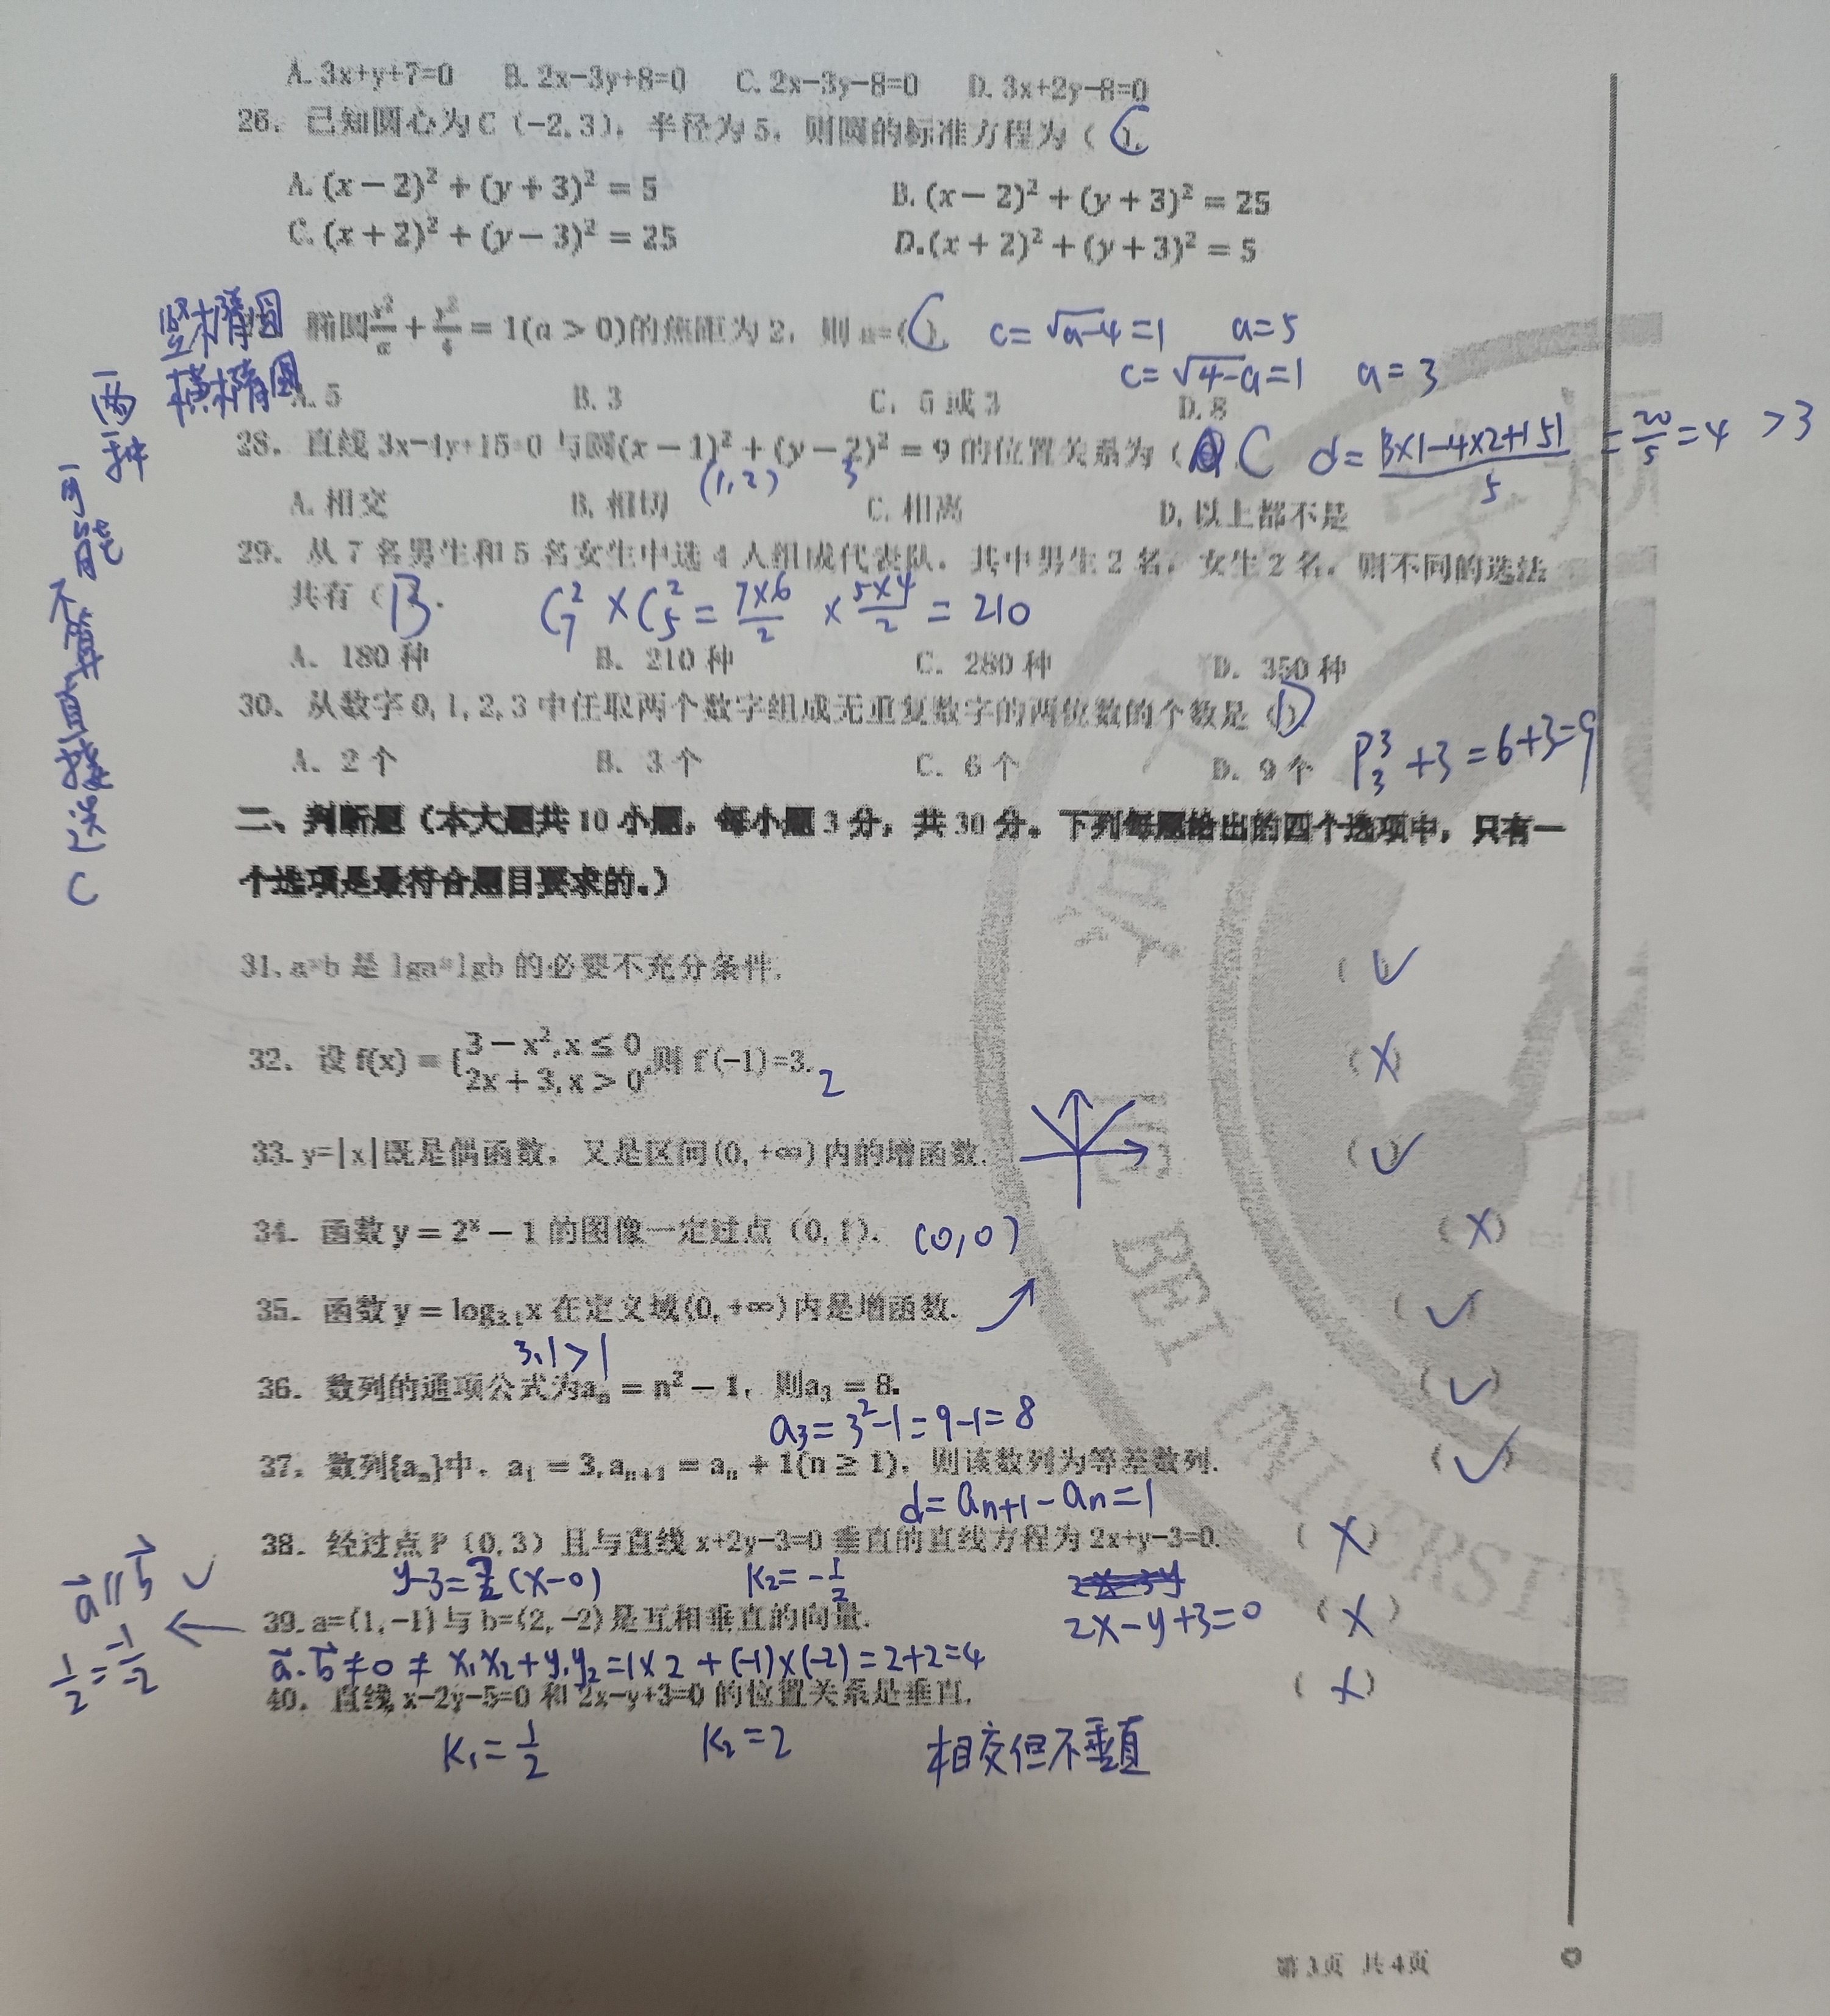 A. 3x+y+7=0 B. 2x-3y+8=0 C. 2x-3y-8=0 D. 3x+2y-8=0
26. 已知圆心为C（-2,3），半径为5，则圆的标准方程为（C）.
A. (x−2)²+(y+3)²=5 B. (x−2)²+(y+3)²=25
C. (x+2)²+(y−3)²=25 D. (x+2)²+(y+3)²=5
竖椭圆
椭圆x²/a+y²/4=1(a>0)的焦距为2，则a=(C) c=√a-4=1 a=5
横椭圆
c=√4-a=1 a=3
两种
A. 5 B. 3 C. 5或3 D. 8
28. 直线3x-4y+15=0与圆(x−1)²+(y−2)²=9的位置关系为（C d=|3×1-4×2+15|/5=20/5=4 >3
(1,2) 3
A. 相交 B. 相切 C. 相离 D. 以上都不是
29. 从7名男生和5名女生中选4人组成代表队，其中男生2名，女生2名，则不同的选法
共有（B. C₇²×C₅²=7×6/2×5×4/2=210
A. 180种 B. 210种 C. 280种 D. 350种
30. 从数字0,1,2,3中任取两个数字组成无重复数字的两位数的个数是（D）.
A. 2个 B. 3个 C. 6个 D. 9个 P₃³+3=6+3=9
二、判断题（本大题共10小题，每小题3分，共30分。下列每题给出的四个选项中，只有一
个选项是最符合题目要求的。）
31. a>b是lga>lgb的必要不充分条件. (✓
32. 设f(x)={3−x²,x≤0 2x+3,x>0,则f(-1)=3. 2 (×)
33. y=|x|既是偶函数，又是区间(0,+∞)内的增函数. (✓)
34. 函数y=2ˣ−1的图像一定过点（0,1）. (0,0) (×)
35. 函数y=log₃.₁x在定义域(0,+∞)内是增函数. (✓)
3.1>1
36. 数列的通项公式为aₙ=n²−1，则a₃=8. (✓)
a₃=3²-1=9-1=8
37. 数列{aₙ}中，a₁=3,aₙ₊₁=aₙ+1(n≥1)，则该数列为等差数列. (✓)
d=aₙ₊₁-aₙ=1
38. 经过点P（0,3）且与直线x+2y-3=0垂直的直线方程为2x+y-3=0. (×)
y-3=2(x-0) K₂=-1/2
2x-y+3=0
a⃗∥b⃗ ✓
39. a=(1,-1)与b=(2,-2)是互相垂直的向量. (×)
1/2=-1/-2
a⃗·b⃗≠0≠x₁x₂+y₁y₂=1×2+(-1)×(-2)=2+2=4
40. 直线x-2y-5=0和2x-y+3=0的位置关系是垂直. (×)
K₁=1/2 K₂=2 相交但不垂直
第3页 共4页